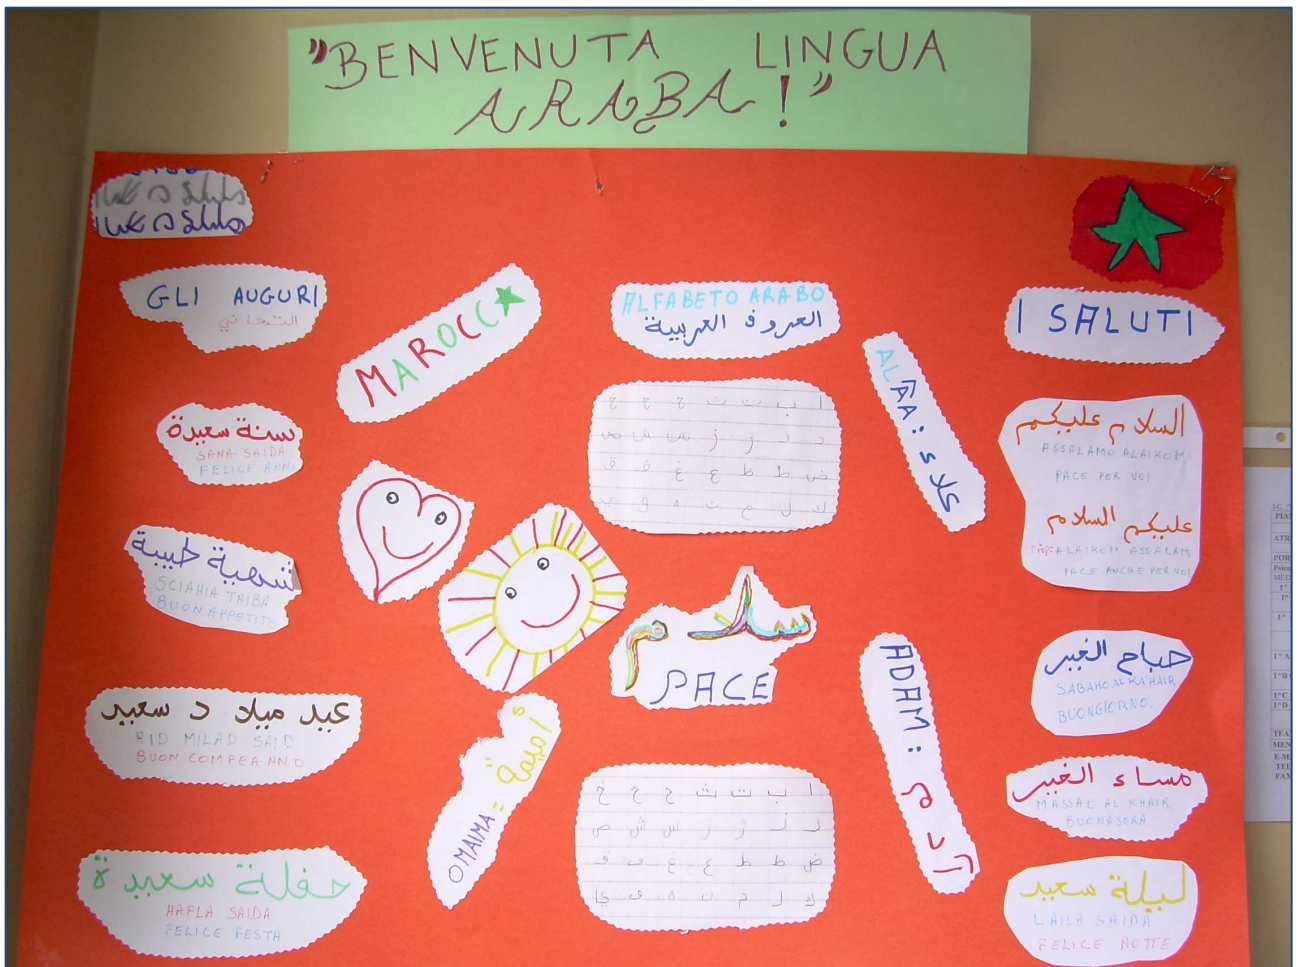 "BENVENUTA LINGUA
ARABA!"
GLI AUGURI
التهاني
سنة سعيدة
SANA SAIDA
FELICE ANNO
شهية طيبة
SCIAHIA TAIBA
BUON APPETITO
عيد ميلاد سعيد
AID MILAD SAID
BUON COMPEANNO
حفلة سعيدة
HAFLA SAIDA
FELICE FESTA
MAROCC
OMAIMA = أميمة
ALFABETO ARABO
الحروف العربية
ا ب ت ث ج ح خ
د ذ ر ز س ش ص
ض ط ظ ع غ ف ق
سلام
PACE
ا ب ت ث ج ح خ
د ذ ر ز س ش ص
ض ط ظ ع غ ف ق
ك ل م ن ه و ي
ALAA: علاء
ADAM: آدم
I SALUTI
السلام عليكم
ASSALAMO ALAIKOM
PACE PER VOI
عليكم السلام
ALAIKOM ASSALAM
PACE ANCHE PER VOI
صباح الخير
SABAHO AL KAHAIR
BUONGIORNO.
مساء الخير
MASSAO AL KHAIR
BUONASERA
ليلة سعيد
LAILA SAIDA
FELICE NOTTE